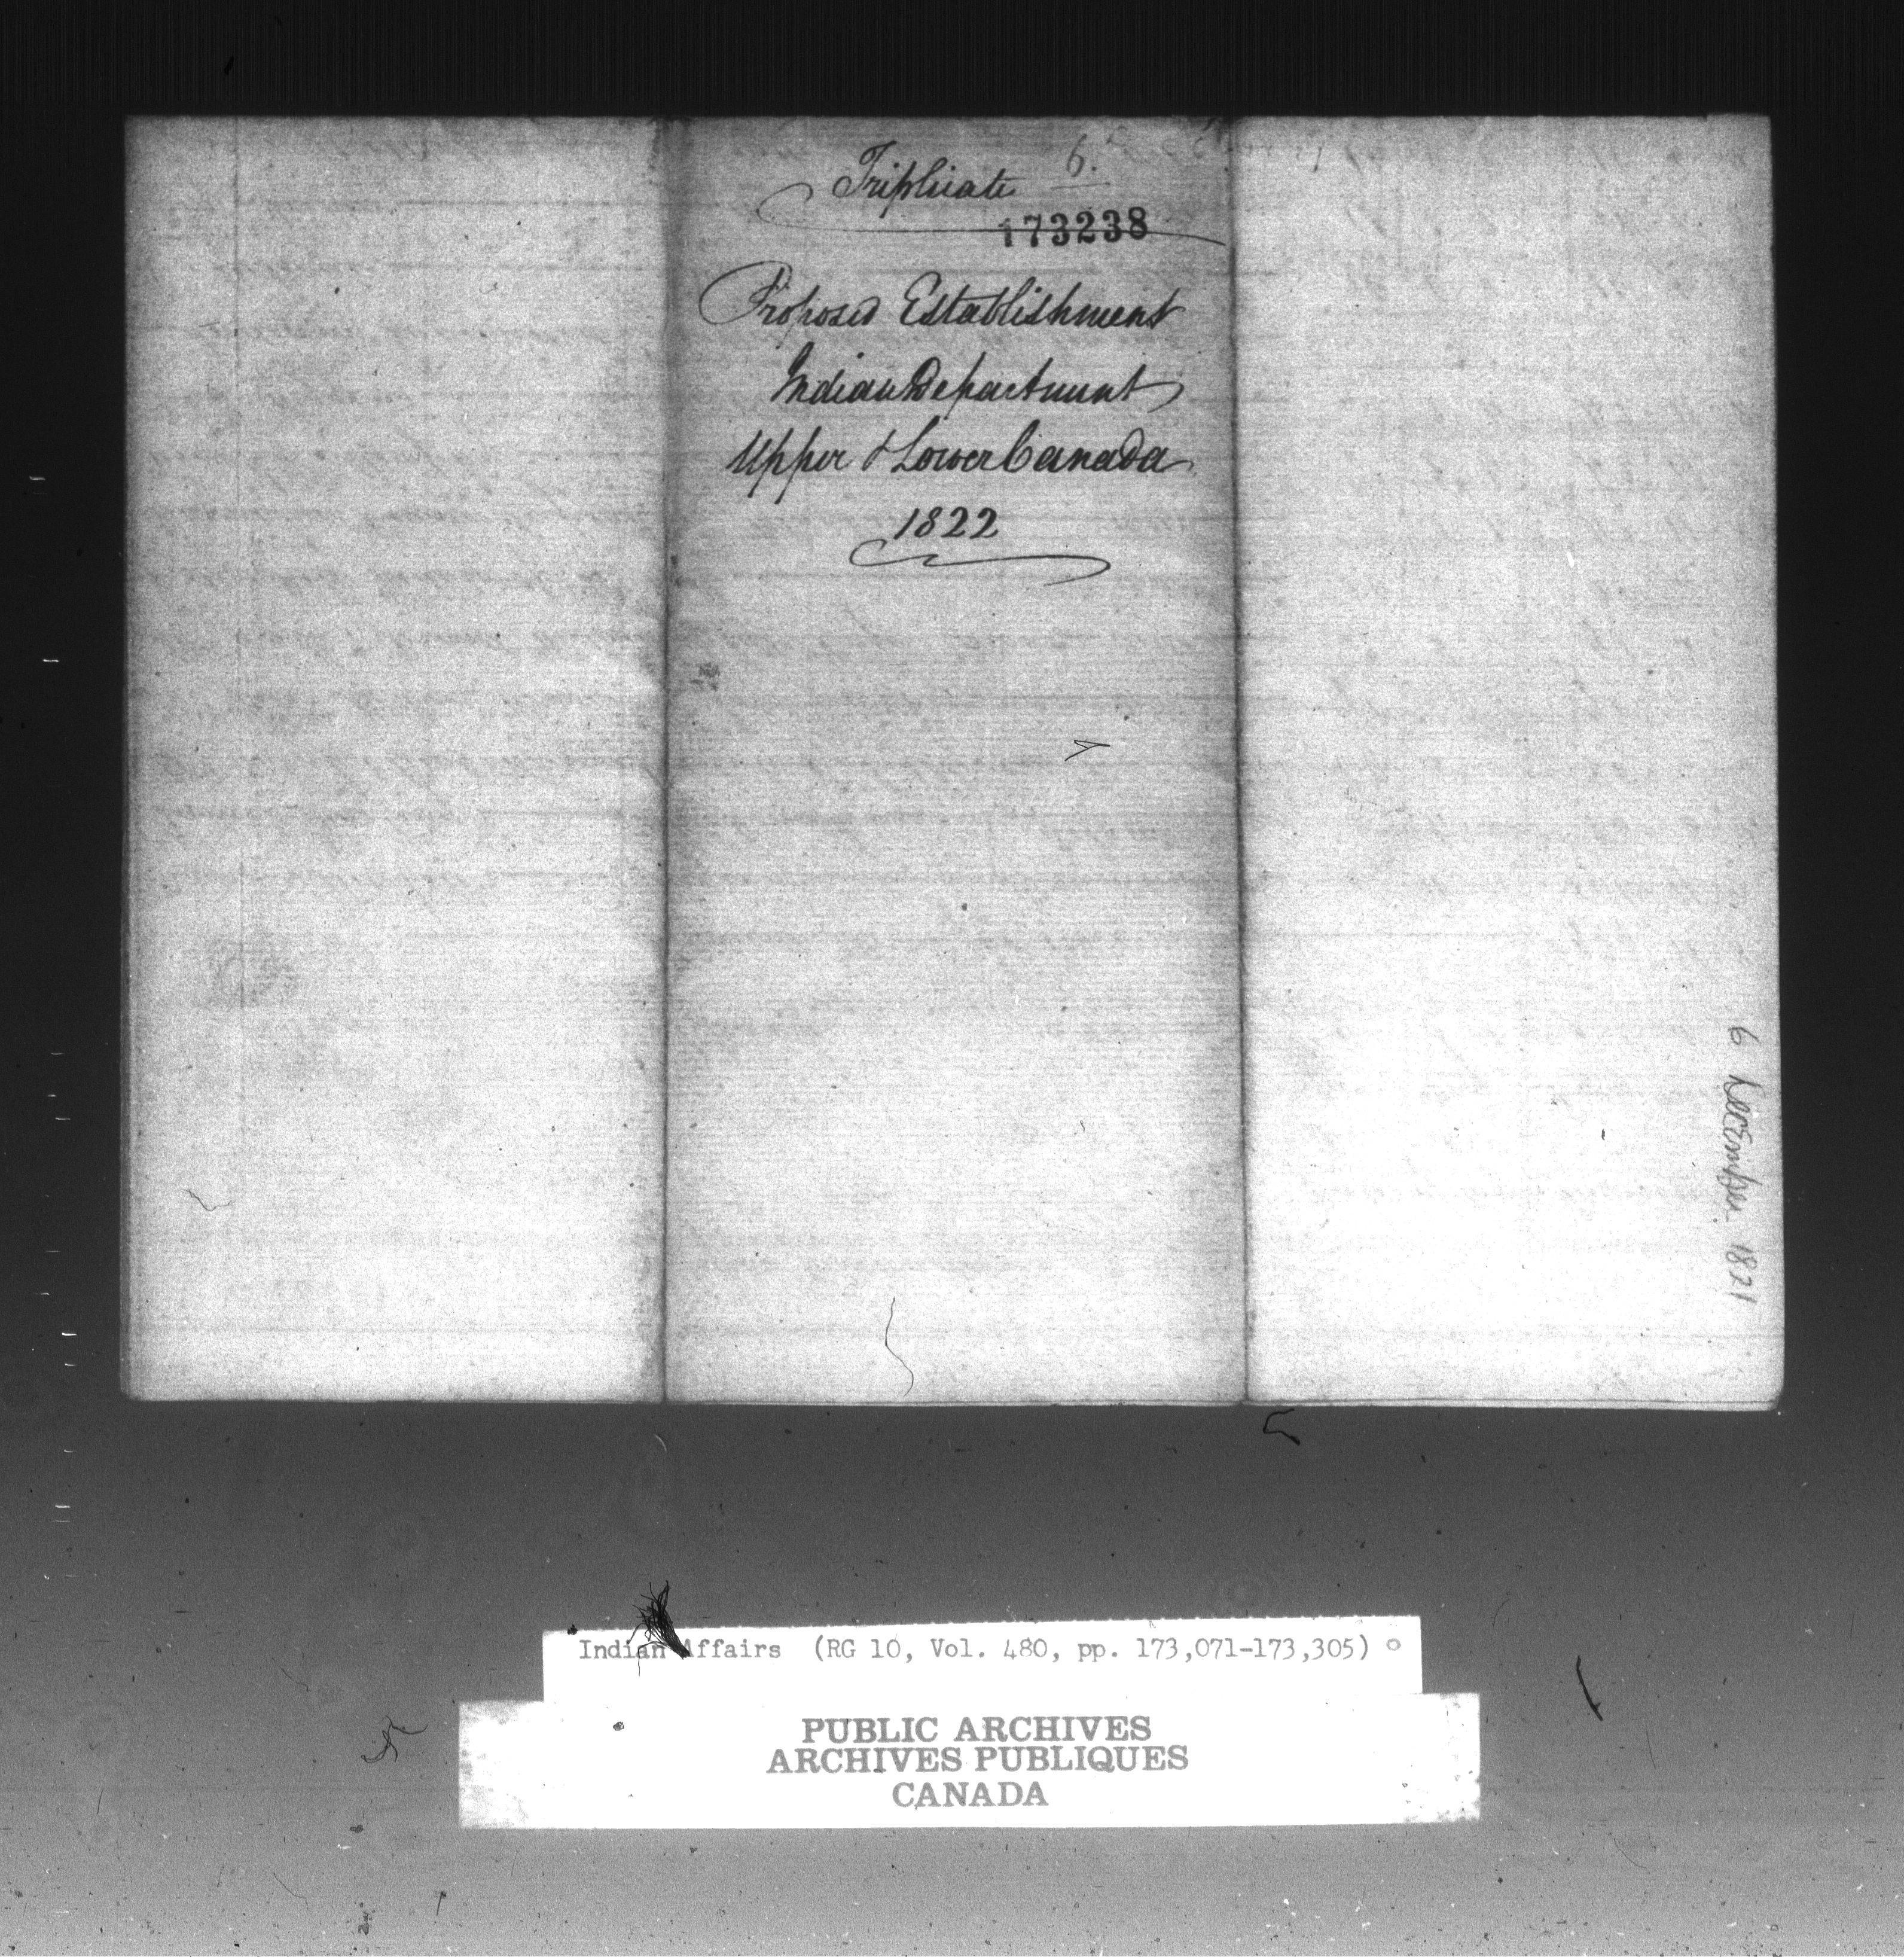 Triplicate 6.
173238
Proposed Establishment
Indian Department
Upper & Lower Canada
1822
6 December 1821
Indian Affairs (RG 10, Vol. 480, pp. 173,071-173,305)
PUBLIC ARCHIVES
ARCHIVES PUBLIQUES
CANADA